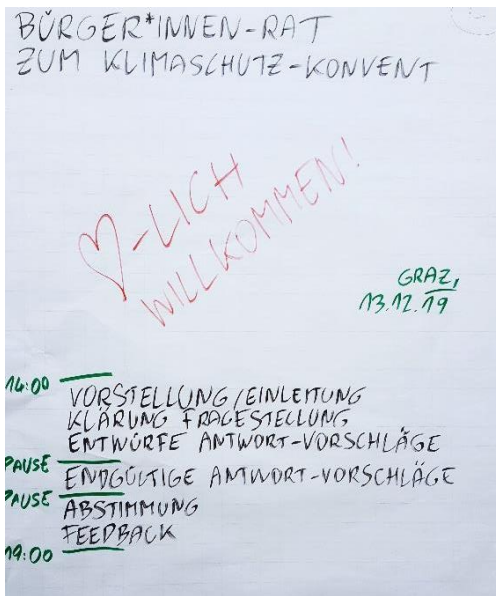 BÜRGER*INNEN-RAT
ZUM KLIMASCHUTZ-KONVENT
♡-LICH
WILLKOMMEN!
GRAZ,
13.12.19
14:00
VORSTELLUNG/EINLEITUNG
KLÄRUNG FRAGESTELLUNG
ENTWÜRFE ANTWORT-VORSCHLÄGE
PAUSE
ENDGÜLTIGE ANTWORT-VORSCHLÄGE
PAUSE
ABSTIMMUNG
FEEDBACK
19:00